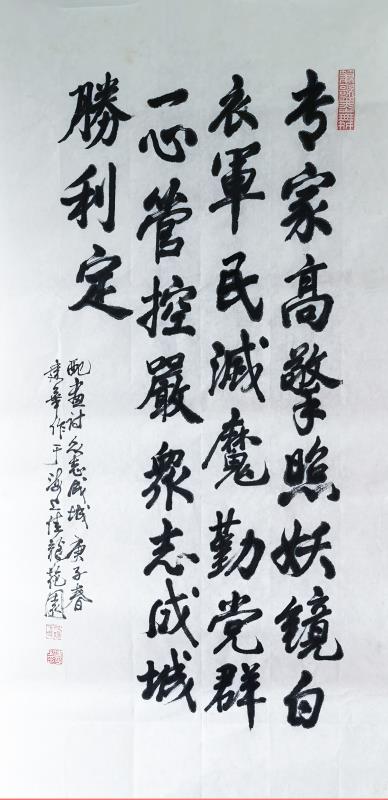 专家高擎照妖镜白
衣軍民滅魔勤党群
一心管控嚴衆志成城
勝利定
配画诗众志成城 庚子春
作于海上佳龍苑園